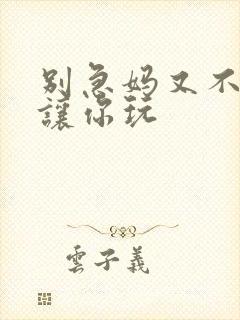 别急妈又不
讓你玩
雲子義